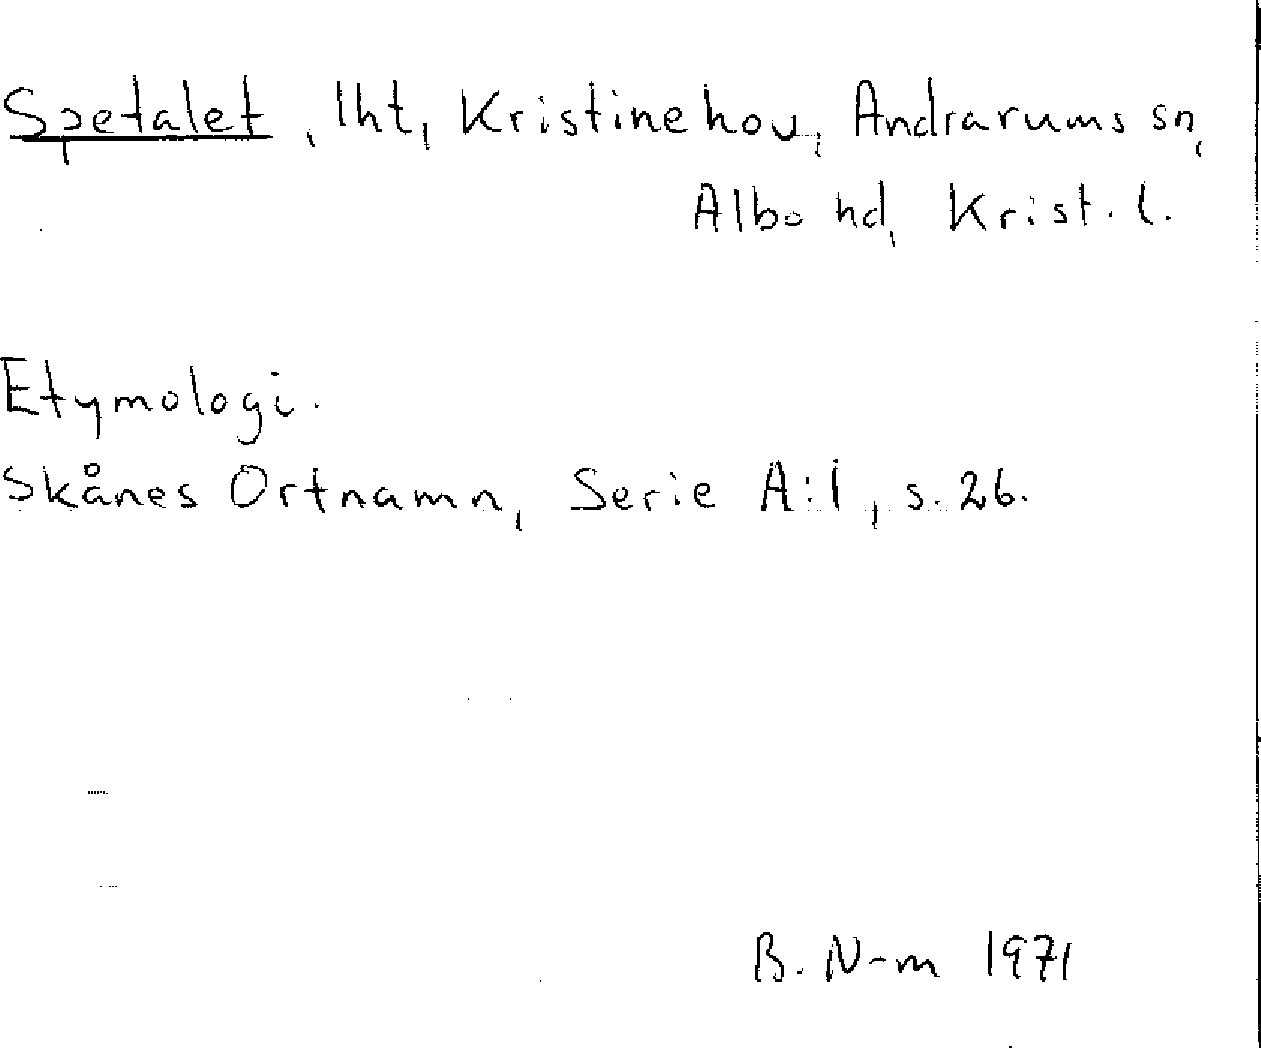 Spetalet, lht, Kristinehov, Andrarums sn,
Albo hd, Krist. l.
Etymologi.
Skånes Ortnamn, Serie A:1, s. 26.
B. N-m 1971